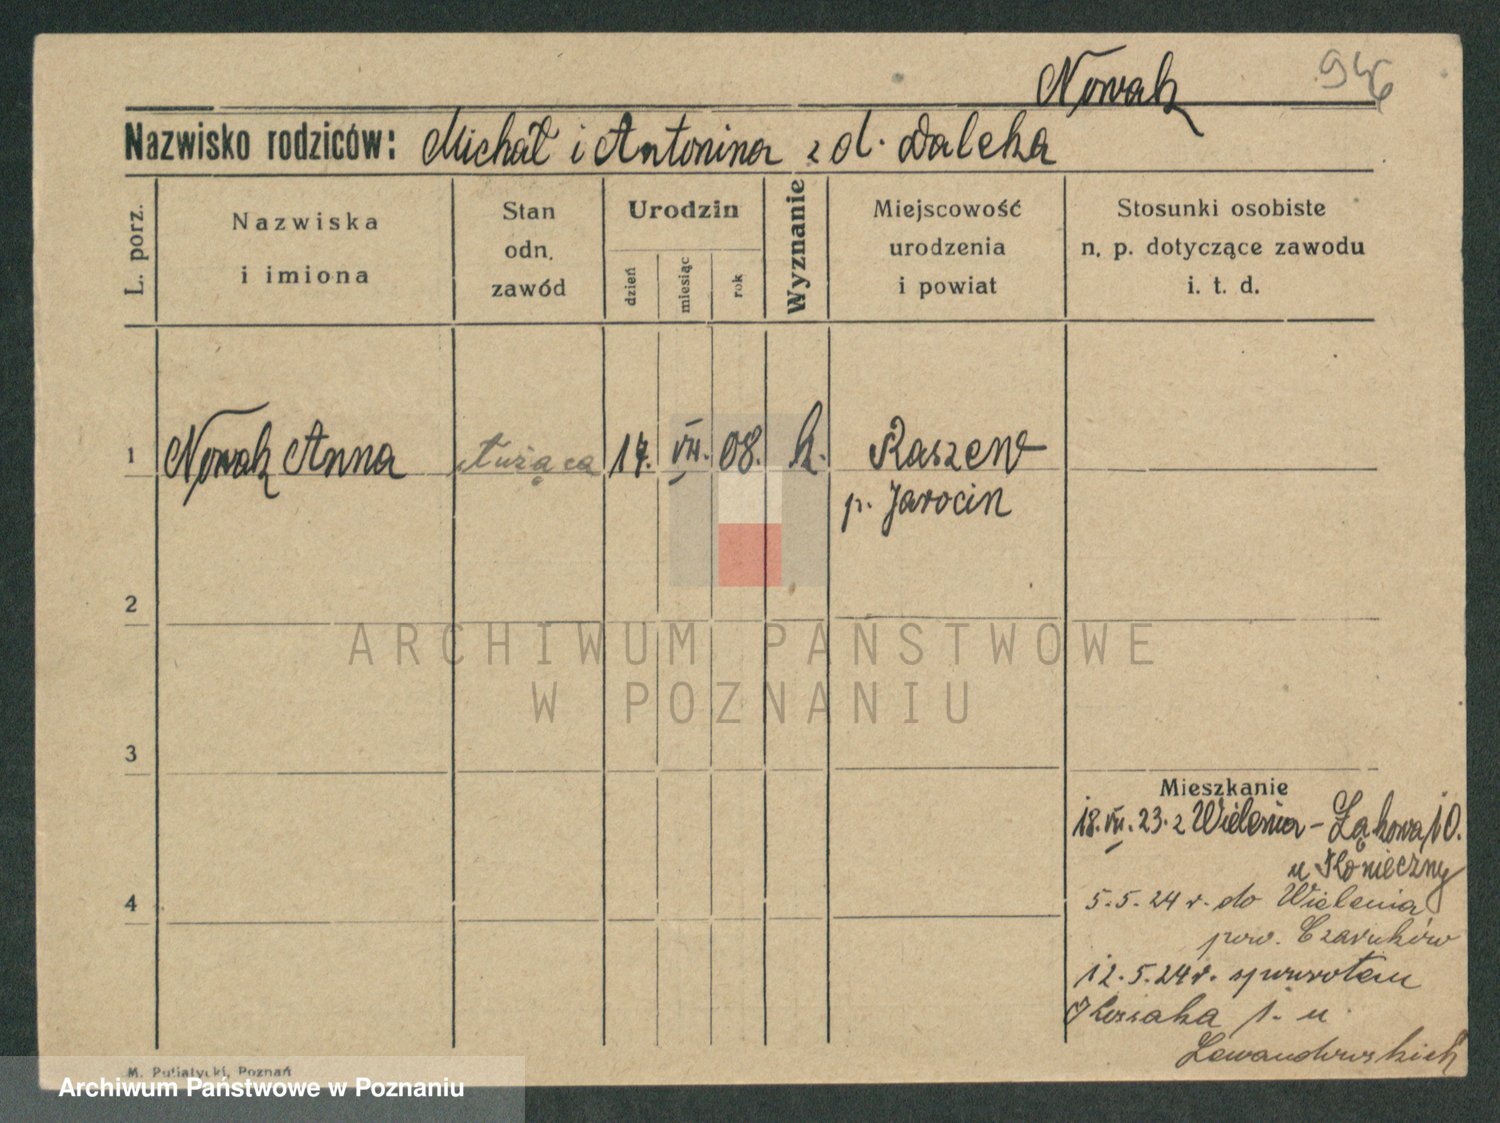 Nowak 946
Nazwisko rodziców: Michał i Antonina z d. Daleka
L. porz.
Nazwiska
i imiona
Stan
odn.
zawód
Urodzin
dzień
miesiąc
rok
Wyznanie
Miejscowość
urodzenia
i powiat
Stosunki osobiste
n. p. dotyczące zawodu
i. t. d.
1 Nowak Anna służąca 17. VII. 08. k. Raszew
p. Jarocin
2
ARCHIWUM PAŃSTWOWE
W POZNANIU
3
Mieszkanie
18. VII. 23. z Wielenia - Łąkowa 10.
u Konieczny
4
5.5.24 r. do Wielenia
pow. Czarnków
12.5.24 r. spowrotem
Kossaka 1. u
Lewandowskich
M. Putiatycki, Poznań
Archiwum Państwowe w Poznaniu